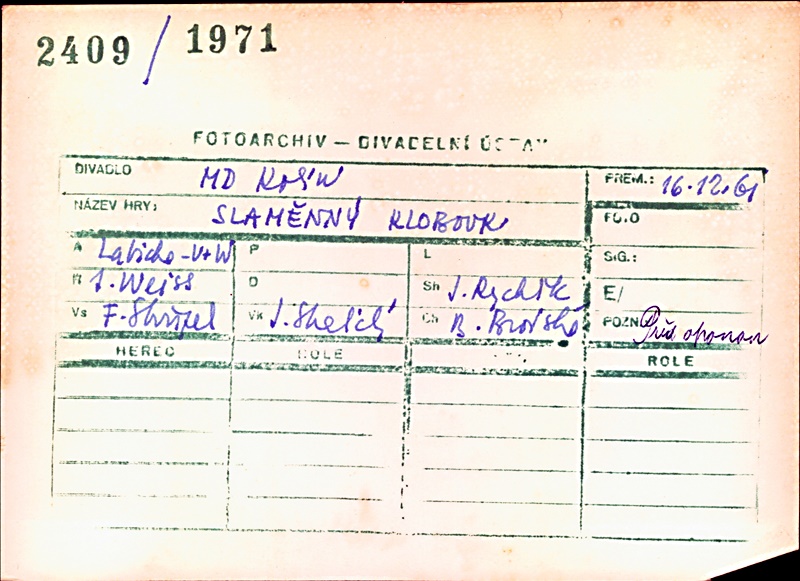 2409 / 1971
FOTOARCHIV — DIVADELNÍ ÚSTAV
DIVADLO MD Kolín PREM.: 16.12.61
NÁZEV HRY: SLAMĚNNÝ KLOBOUK FOTO
A Labiche - V+W P L SIG.:
R J. Weiss D Sh J. Rychlík E/
Vs F. Skřípek Vk Ch POZN. Před oponou
HEREC ROLE ROLE